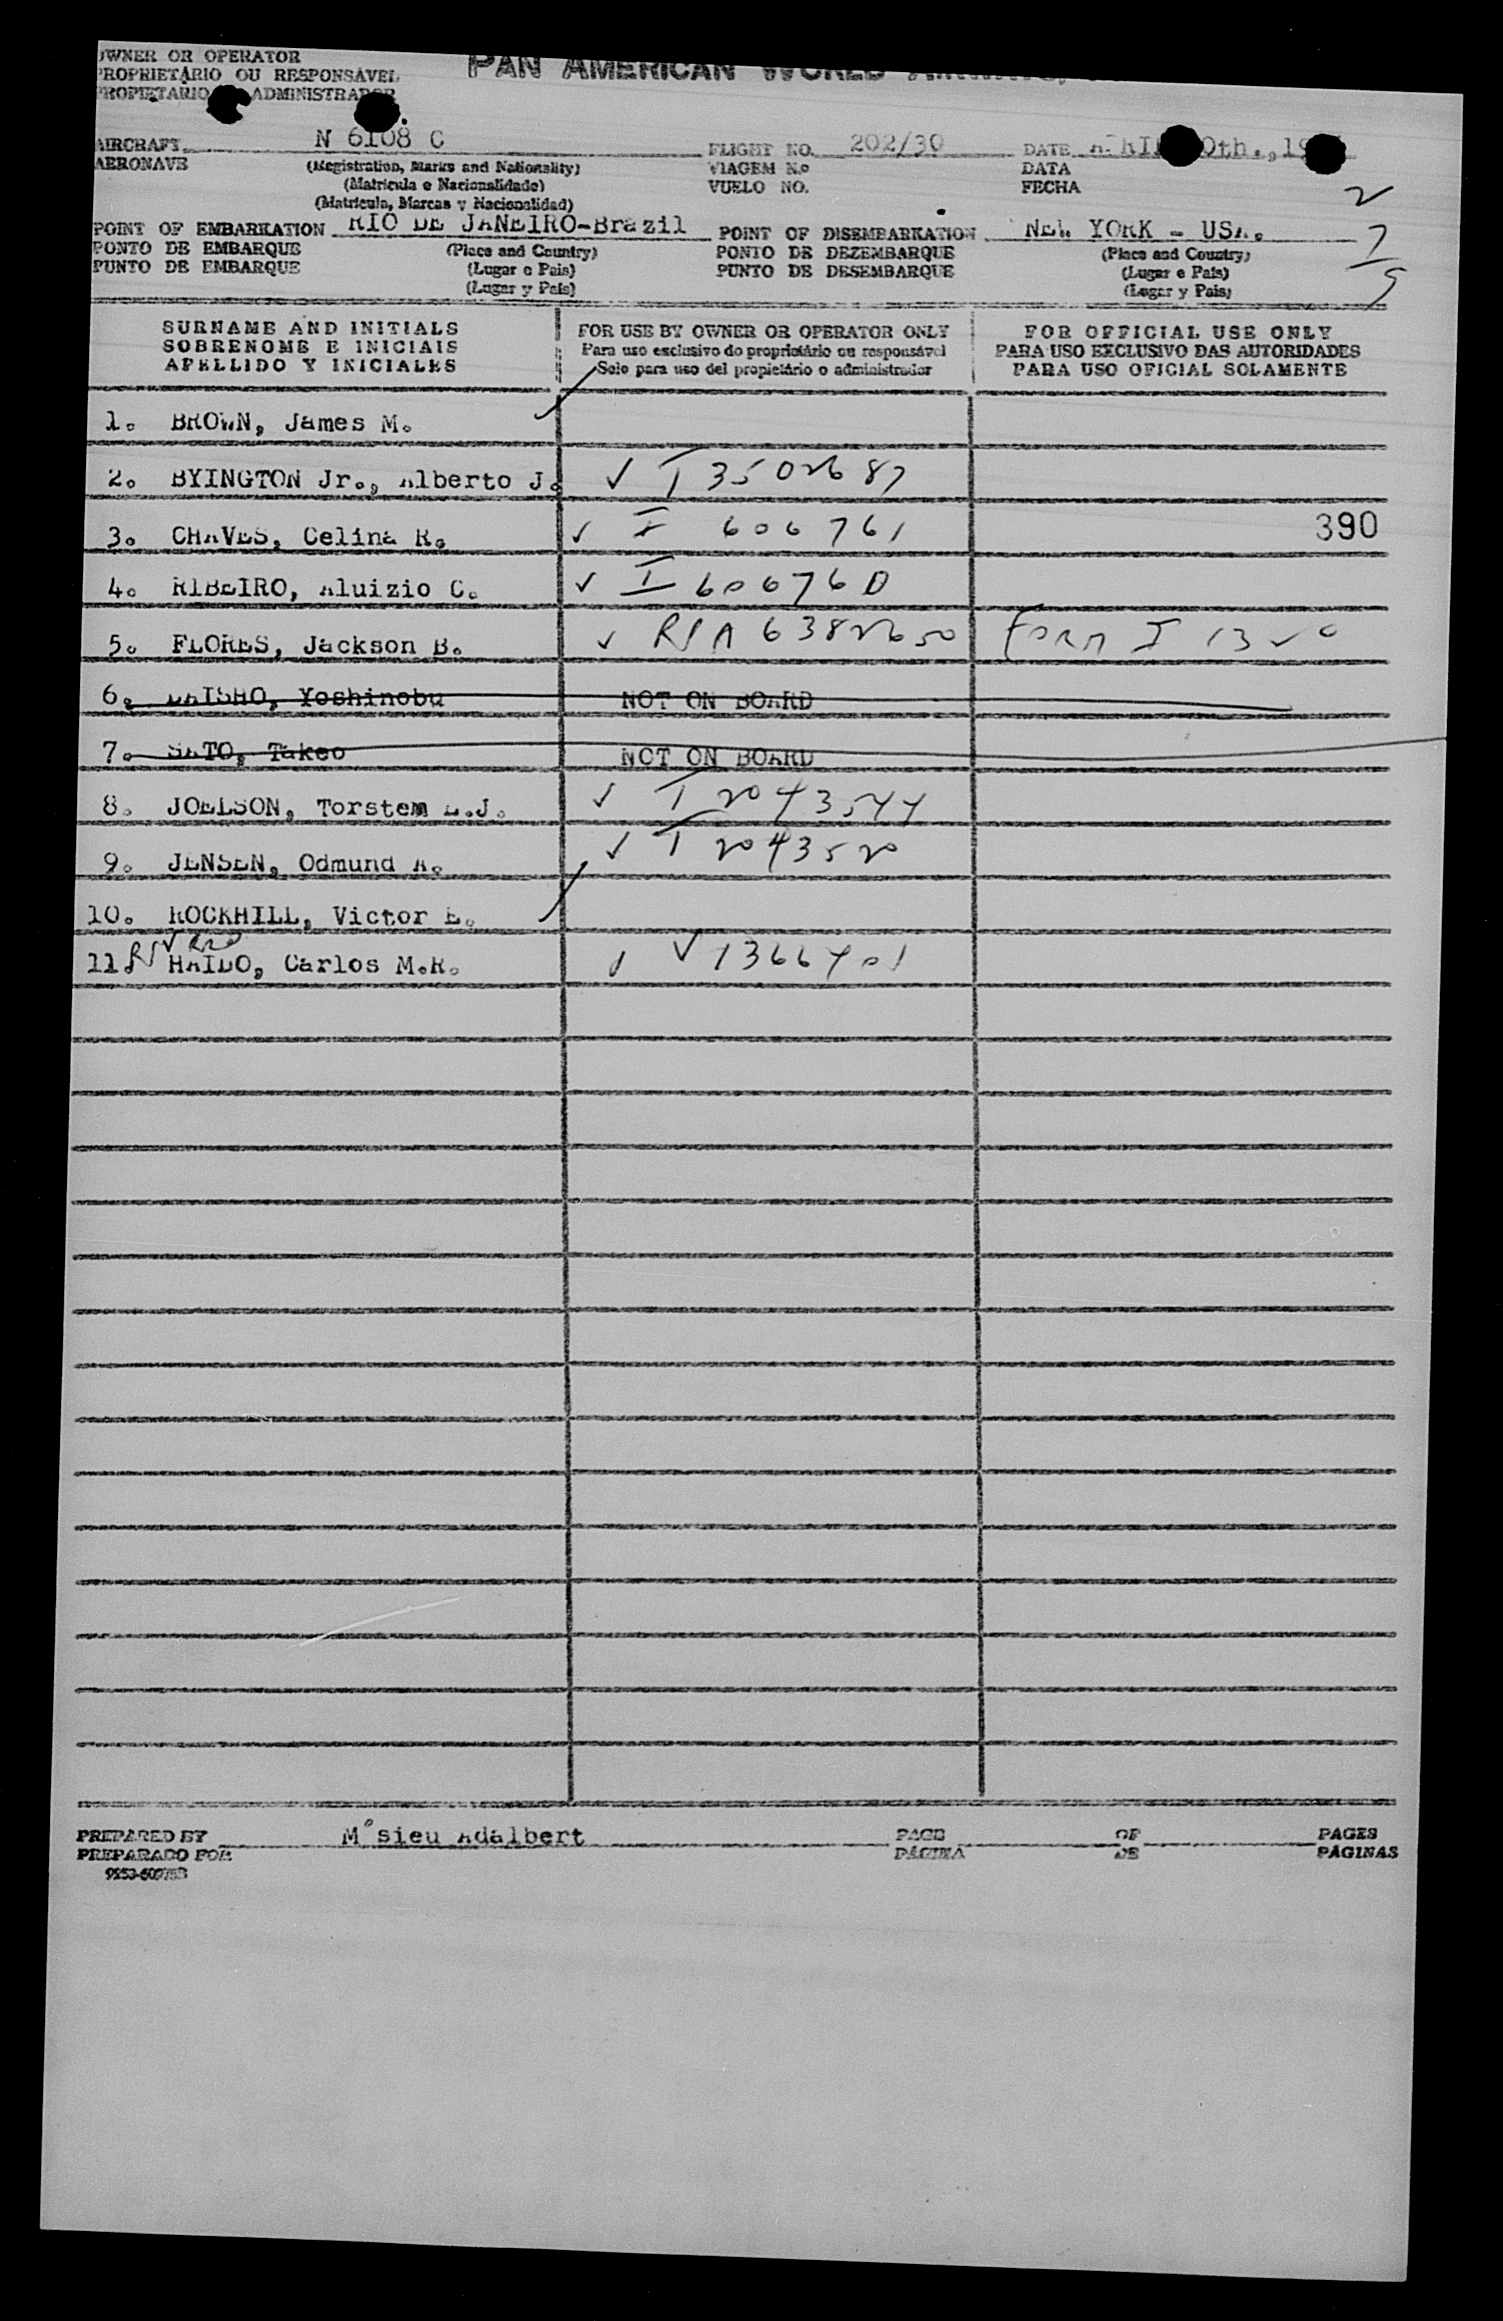 OWNER OR OPERATOR
PROPRIETÁRIO OU RESPONSÁVEL
PROPIETARIO ADMINISTRADOR
PAN AMERICAN WORLD
AIRCRAFT N 6108 C FLIGHT NO. 202/30 DATE APRIL 0th., 19
AERONAVE (Registration, Marks and Nationality) VIAGEM N.º DATA
(Matrícula e Nacionalidade) VUELO NO. FECHA
(Matrícula, Marcas y Nacionalidad)
2
7
5
POINT OF EMBARKATION RIO DE JANEIRO-Brazil POINT OF DISEMBARKATION NEW YORK - USA.
PONTO DE EMBARQUE (Place and Country) PONTO DE DEZEMBARQUE (Place and Country)
PUNTO DE EMBARQUE (Lugar e País) PUNTO DE DESEMBARQUE (Lugar e País)
(Lugar y País) (Lugar y País)
SURNAME AND INITIALS FOR USE BY OWNER OR OPERATOR ONLY FOR OFFICIAL USE ONLY
SOBRENOME E INICIAIS Para uso exclusivo do proprietário ou responsável PARA USO EXCLUSIVO DAS AUTORIDADES
APELLIDO Y INICIALES Solo para uso del propietário o administrador PARA USO OFICIAL SOLAMENTE
1. BROWN, James M.
2. BYINGTON Jr., Alberto J. ✓ I 3502687
3. CHAVES, Celina R. ✓ I 606761 390
4. RIBEIRO, Aluizio C. ✓ I 606760
5. FLORES, Jackson B. ✓ R/A 6382650 Form I
6. DAISHO, Yoshinobu NOT ON BOARD
7. SATO, Takeo NOT ON BOARD
8. JOELSON, Torstem E.J. ✓ I 2043544
9. JENSEN, Odmund A. ✓ I 2043520
10. ROCKHILL, Victor E.
11. HAIDO, Carlos M.R. ✓ V 1366401
PREPARED BY M°sieu Adalbert PAGE OF PAGES
PREPARADO POR PÁGINA DE PÁGINAS